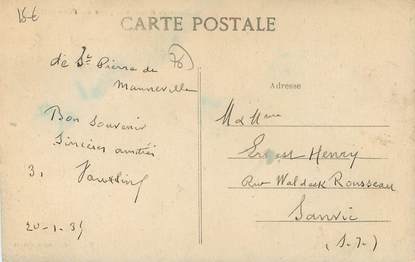 15€
CARTE POSTALE
de St Pierre de
Manneville
76
Bon souvenir
Sincères amitiés
20-1-35
Adresse
M et Mme
Ernest Henry
Rue Waldeck Rousseau
Sanvic
(S-I)